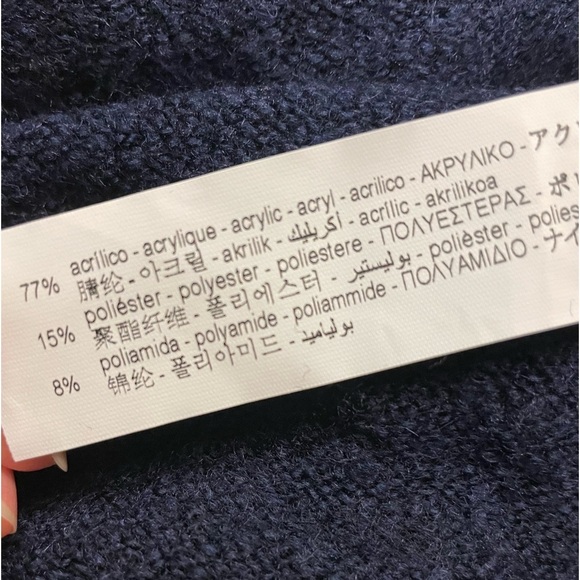 77% acrílico - acrylique - acrylic - acryl - acrilico - ΑΚΡΥΛΙΚΟ - アク
腈纶 - 아크릴 - akrilik - أكريليك - acrílic - akrilikoa
15% poliéster - polyester - poliestere - ΠΟΛΥΕΣΤΕΡΑΣ - ポ
聚酯纤维 - 폴리에스터 - بوليستير - polièster - polies
8% poliamida - polyamide - poliammide - ΠΟΛΥΑΜΙΔΙΟ - ナイ
锦纶 - 폴리아미드 - بولياميد